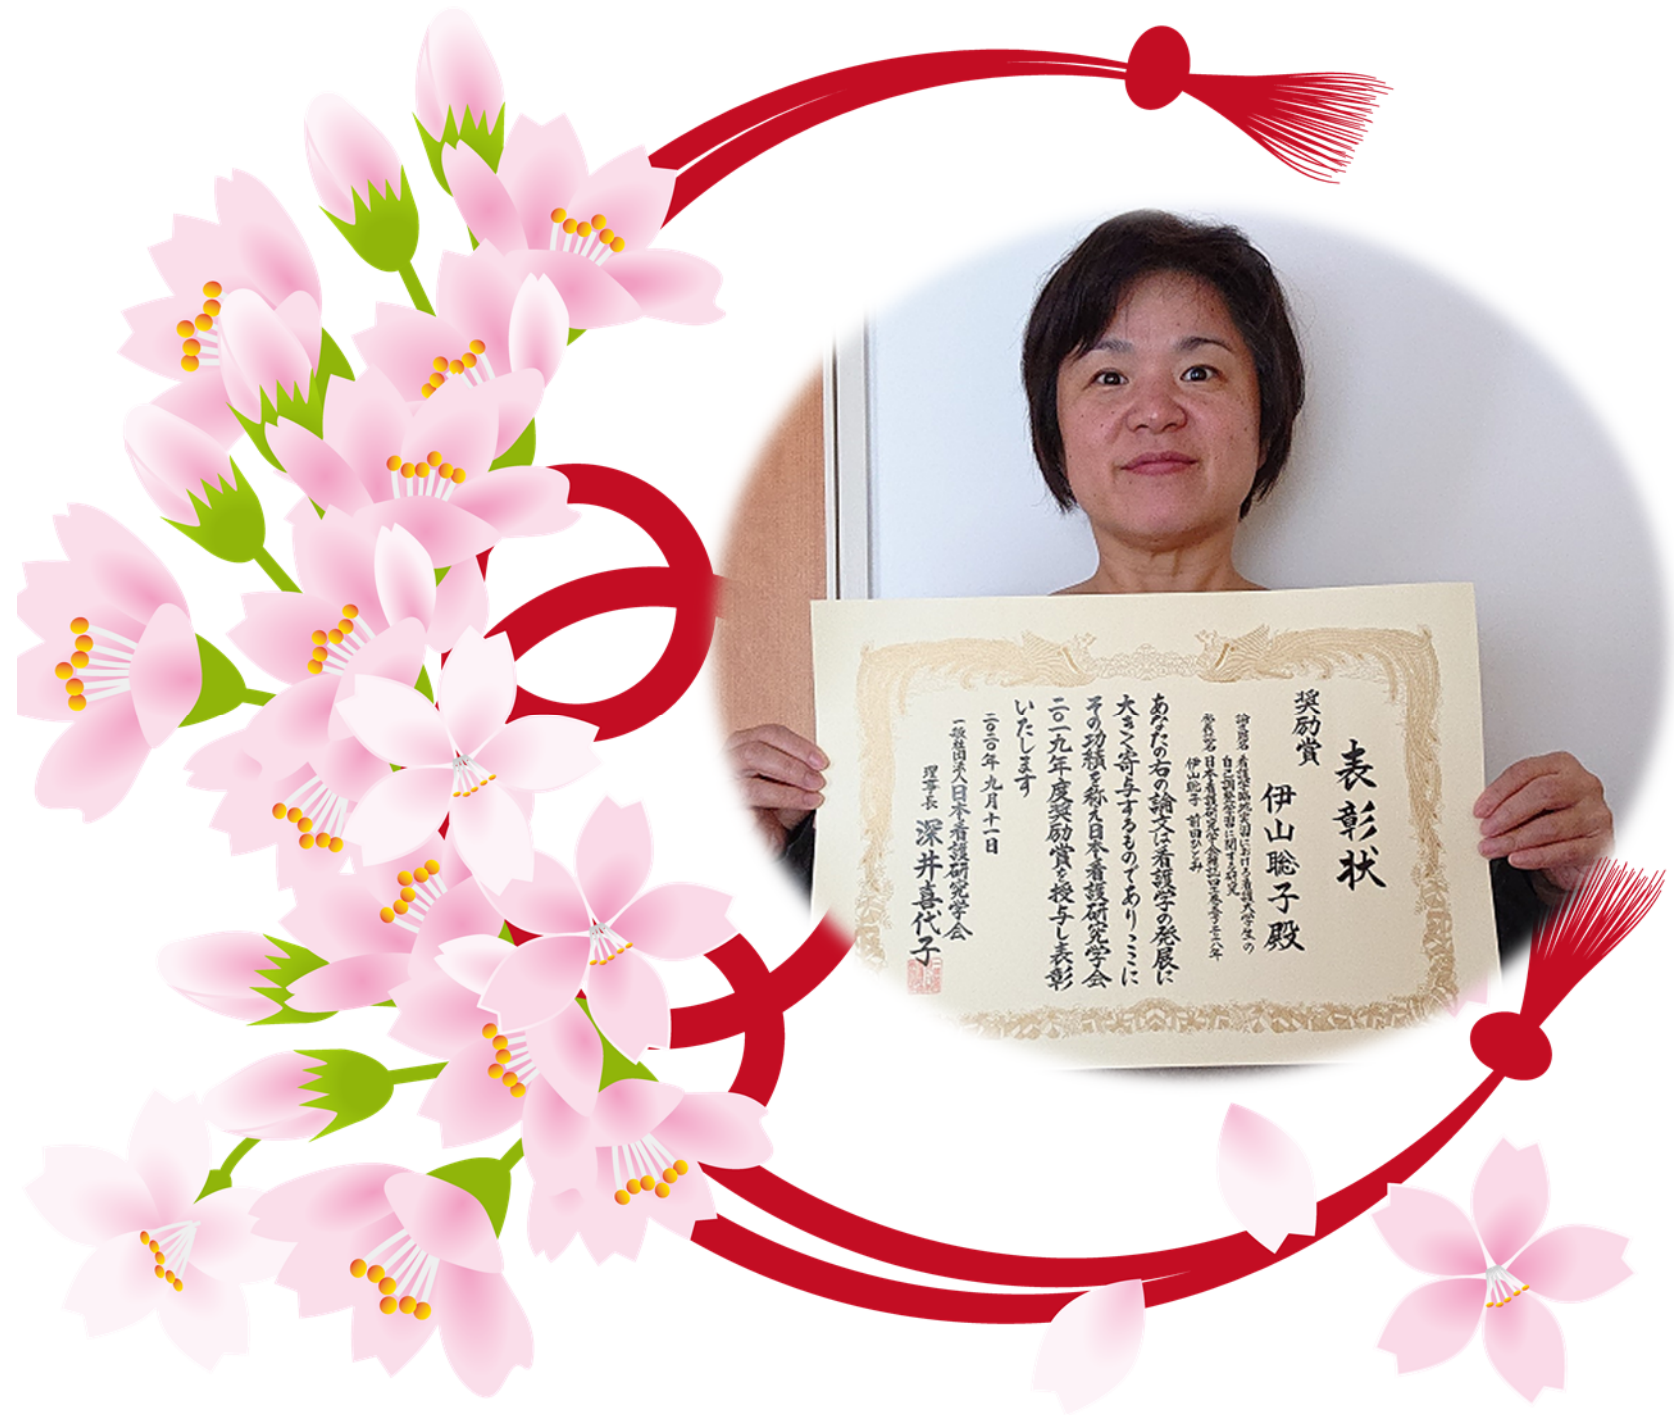 表彰状
奨励賞
伊山聡子殿
論文名 看護学臨地実習における看護大学生の
自己調整学習に関する研究
日本看護研究学会雑誌四一巻五号二〇一八年
伊山聡子 前田ひとみ
あなたの右の論文は看護学の発展に
大きく寄与するものでありここに
その功績を称え日本看護研究学会
二〇一九年度奨励賞を授与し表彰
いたします
二〇二〇年九月十一日
一般社団法人日本看護研究学会
理事長 深井喜代子